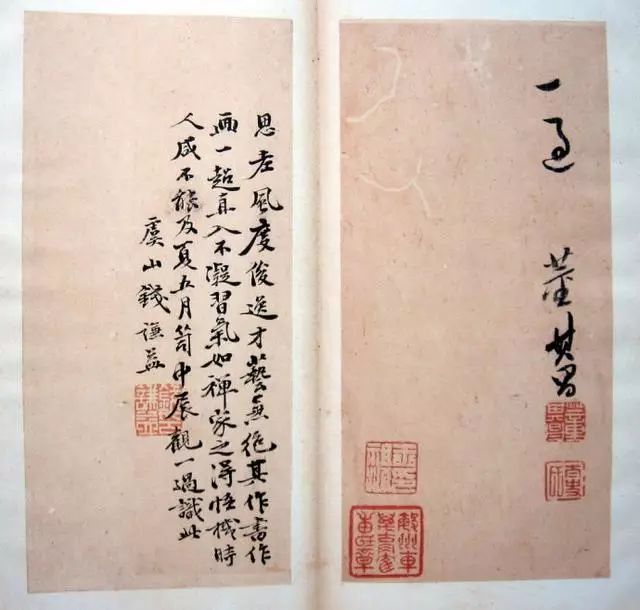 一過
董其昌
思老風度俊逸才藝無絶其作書作
画一超直入不凝習氣如禪家之得悟機時
人咸不能及夏五月笥中展觀一過識此
虞山錢謙益